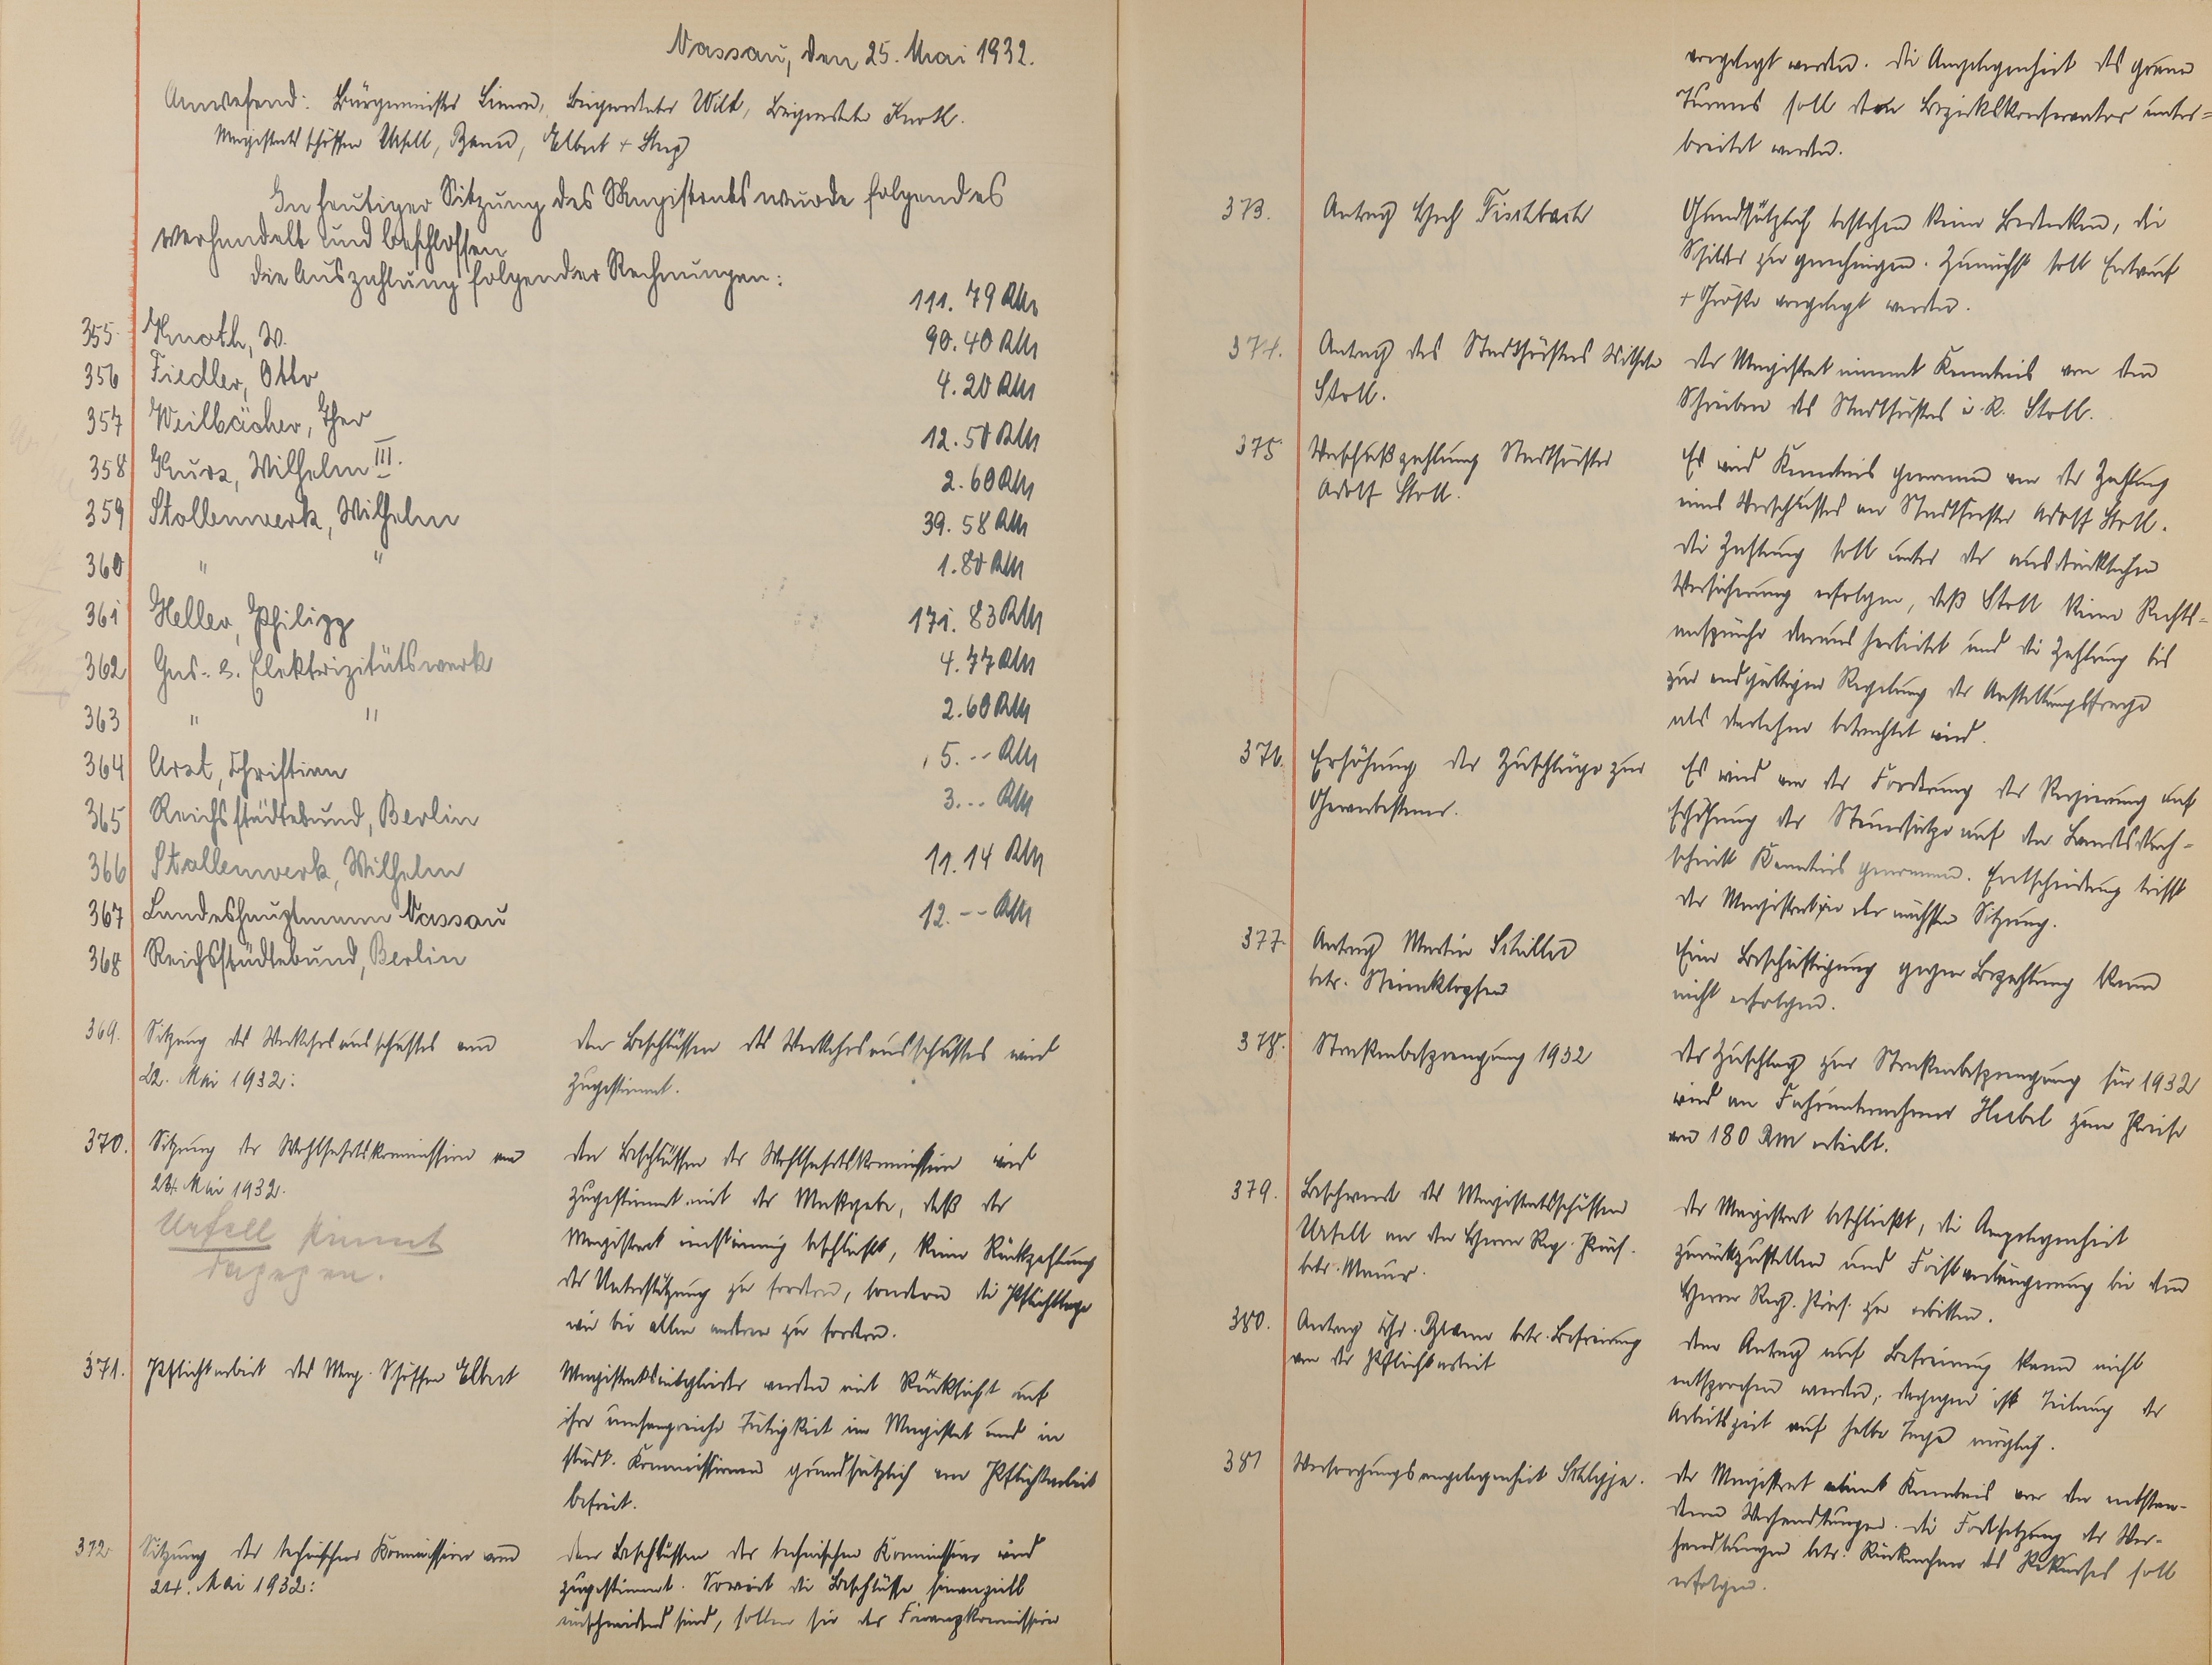 Nassau, den 25. Mai 1932.
Anwesend: Bürgermeister Beigeordneter Wilk, Beigeordneter Knoth.
Magistratsschöffen Urfell, Elbert +
In heutiger Sitzung des Magistrats wurde folgendes
verhandelt und beschlossen
die Auszahlung folgender Rechnungen:
355. Knoth, W. 111.79 RM
356 Fiedler, Otto 90.40 RM
357 Weilbächer, Ther 4.20 RM
358 Kurz, Wilhelm III. 12.50 RM
359 Stollenwerk, Wilhelm 2.60 RM
360 " " 39.58 RM
361 Heller, Philipp 1.80 RM
362 Gas- u. Elektrizitätswerk 171.83 RM
363 " " 4.77 RM
364 Arzt, Christian 2.60 RM
365 Reichsstädtebund, Berlin 5.-- RM
366 Stollenwerk, Wilhelm 3.-- RM
367 Landeshauptmann Nassau 11.14 RM
368 Reichsstädtebund, Berlin 12.-- RM
369. Sitzung des Verkehrsausschusses vom
22. Mai 1932:
Den Beschlüssen des Verkehrsausschusses wird
zugestimmt.
370. Sitzung der Wohlfahrtskommission vom
24. Mai 1932.
Urfell stimmt
dagegen.
Den Beschlüssen der Wohlfahrtskommission wird
zugestimmt mit der Maßgabe, daß der
Magistrat einstimmig beschließt, keine Rückzahlung
der Unterstützung zu fordern, sondern die Pflichttage
wie bei allen anderen zu fordern.
371. Pflichtarbeit des Mag. Schöffen Elbert
Magistratsmitglieder werden mit Rücksicht auf
ihre umfangreiche Tätigkeit im Magistrat und in
städt. Kommissionen grundsätzlich von Pflichtarbeit
befreit.
372 Sitzung der technischen Kommission vom
24. Mai 1932:
Den Beschlüssen der technischen Kommission wird
zugestimmt. Soweit die Beschlüsse finanziell
einschneidend sind, sollen sie der Finanzkommission
vorgelegt werden. Die Angelegenheit des grauen
Turmes soll dem Bezirkskonservator unter=
breitet werden.
373. Antrag Fischbach
Grundsätzlich bestehen keine Bedenken, die
Schilder zu genehmigen. Zunächst soll Entwurf
+ Größe vorgelegt werden.
374. Antrag des Stadtförsters Wilhelm
Stoll.
Der Magistrat nimmt Kenntnis von dem
Schreiben des Stadtförsters i. R. Stoll.
375 Vorschußzahlung Stadtförster
Adolf Stoll.
Es wird Kenntnis genommen von der Zahlung
eines Vorschusses an Stadtförster Adolf Stoll.
Die Zahlung soll unter der ausdrücklichen
Versicherung erfolgen, daß Stoll keine Rechts=
ansprüche daraus herleitet und die Zahlung bis
zur endgültigen Regelung der Anstellungsfrage
als Darlehn betrachtet wird.
376. Erhöhung der Zuschläge zur
Gewerbesteuer.
Es wird von der Forderung der Regierung auf
Erhöhung der Steuersätze auf den Landesdurch=
schnitt Kenntnis genommen. Entscheidung trifft
der Magistrat in der nächsten Sitzung.
377. Antrag Martin Schiller
betr. Steinklopfen
Eine Beschäftigung gegen Bezahlung kann
nicht erfolgen.
378. Straßenbesprengung 1932
Der Zuschlag zur Straßenbesprengung für 1932
wird an Fuhrunternehmer Heibel zum Preise
von 180 RM erteilt.
379. Beschwerde des Magistratsschöffen
Urfell an den Herrn Reg. Präs.
betr. Mauer.
Der Magistrat beschließt, die Angelegenheit
zurückzustellen und Fristverlängerung bei dem
Herrn Reg. Präs. zu erbitten.
380. Antrag Chr. betr. Befreiung
von der Pflichtarbeit
Dem Antrag auf Befreiung kann nicht
entsprochen werden; dagegen ist Teilung der
Arbeitszeit auf halbe Tage möglich.
381 Versorgungsangelegenheit
Der Magistrat nimmt Kenntnis von den
Verhandlungen. Die Fortsetzung der Ver-
handlungen betr. Rücknahme des Rekurses soll
erfolgen.